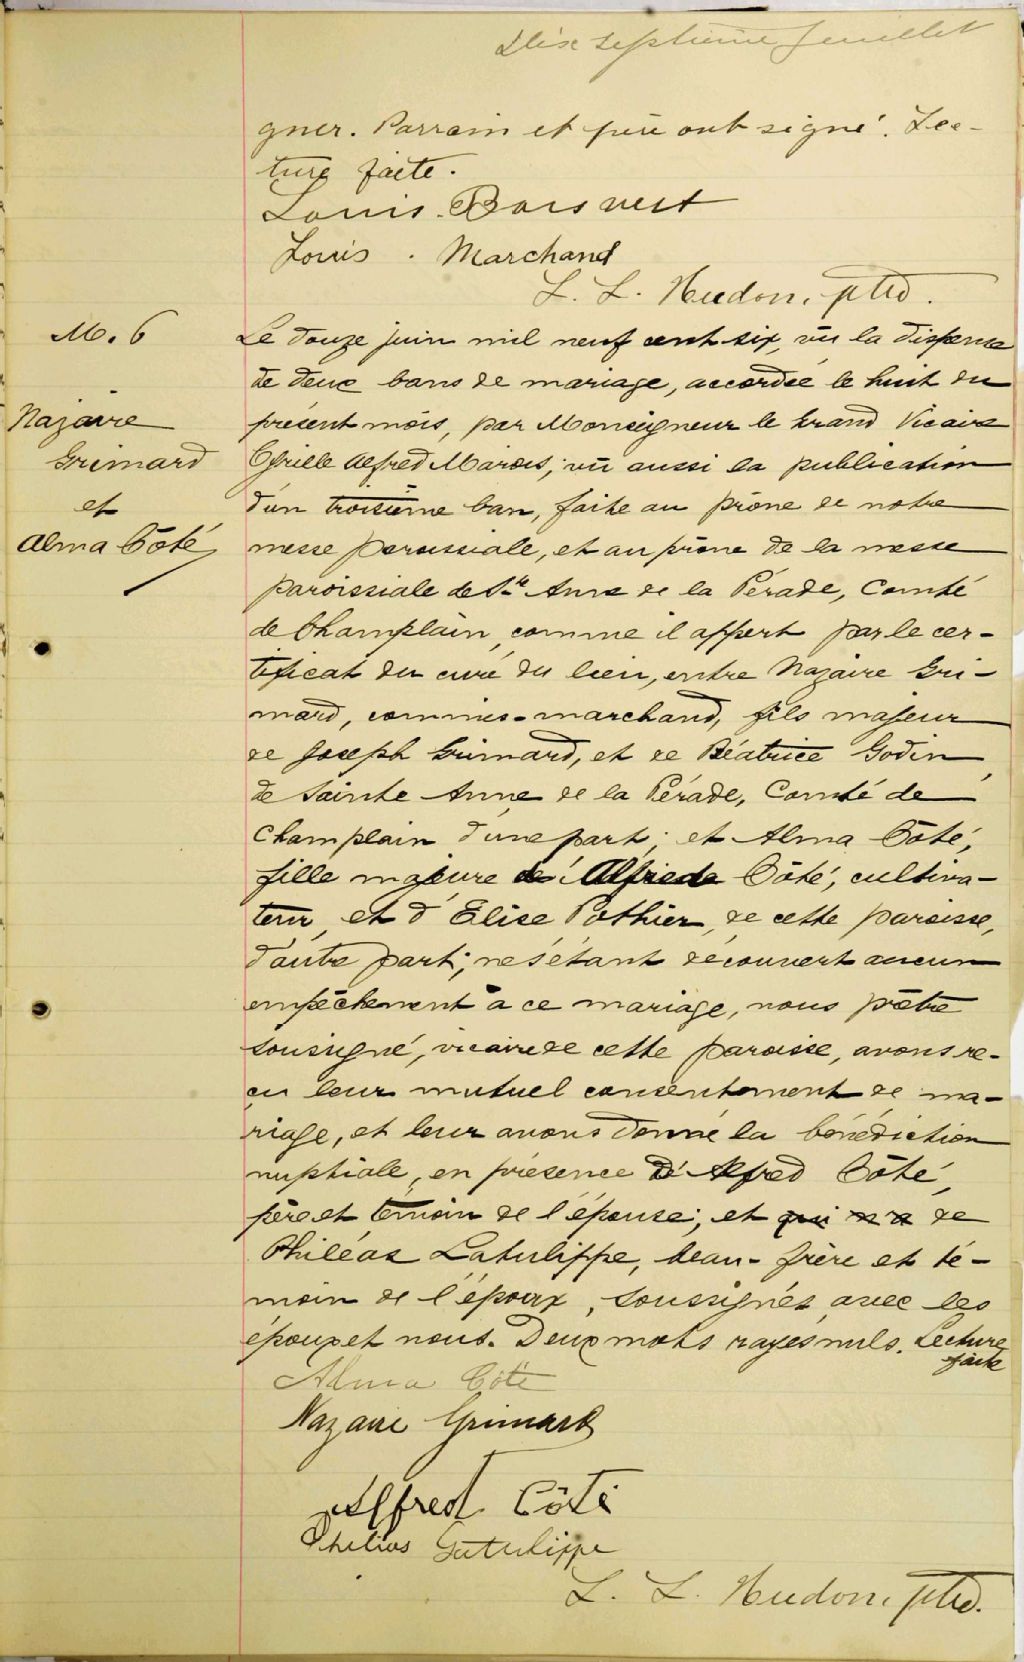 Dix septième feuillet
gner. Parrain et père ont signé. Lec-
ture faite.
Louis Boisvert
Louis . Marchand
L. L. Hudon, ptre.
M. 6
Nazaire
Grimard
et
Alma Côté
Le douze juin mil neuf cent six, vu la dispense
de deux bans de mariage, accordée le huit du
présent mois, par Monseigneur le Grand Vicaire
Cyrille Alfred Marois; vu aussi la publication
d'un troisième ban, faite au prône de notre
messe paroissiale, et au prône de la messe
paroissiale de Ste Anne de la Pérade, Comté
de Champlain, comme il appert par le cer-
tificat du curé du lieu, entre Nazaire Gri-
mard, commis-marchand, fils majeur
de Joseph Grimard, et de Béatrice Godin,
de Sainte Anne de la Pérade, Comté de
Champlain d'une part; et Alma Côté,
fille majeure de Alfred Côté, cultiva-
teur, et d'Elise Pothier, de cette paroisse,
d'autre part; ne s'étant découvert aucun
empêchement à ce mariage, nous prêtre
soussigné, vicaire de cette paroisse, avons re-
çu leur mutuel consentement de ma-
riage, et leur avons donné la bénédiction
nuptiale, en présence d'Alfred Côté,
père et témoin de l'épouse; et qui n'a de
Philéas Latulippe, beau-frère et té-
moin de l'époux, soussignés avec les
époux et nous. Deux mots rayés nuls. Lecture
faite
Alma Côté
Nazaire Grimard
Alfred Côté
Philias Latulippe
L. L. Hudon, ptre.